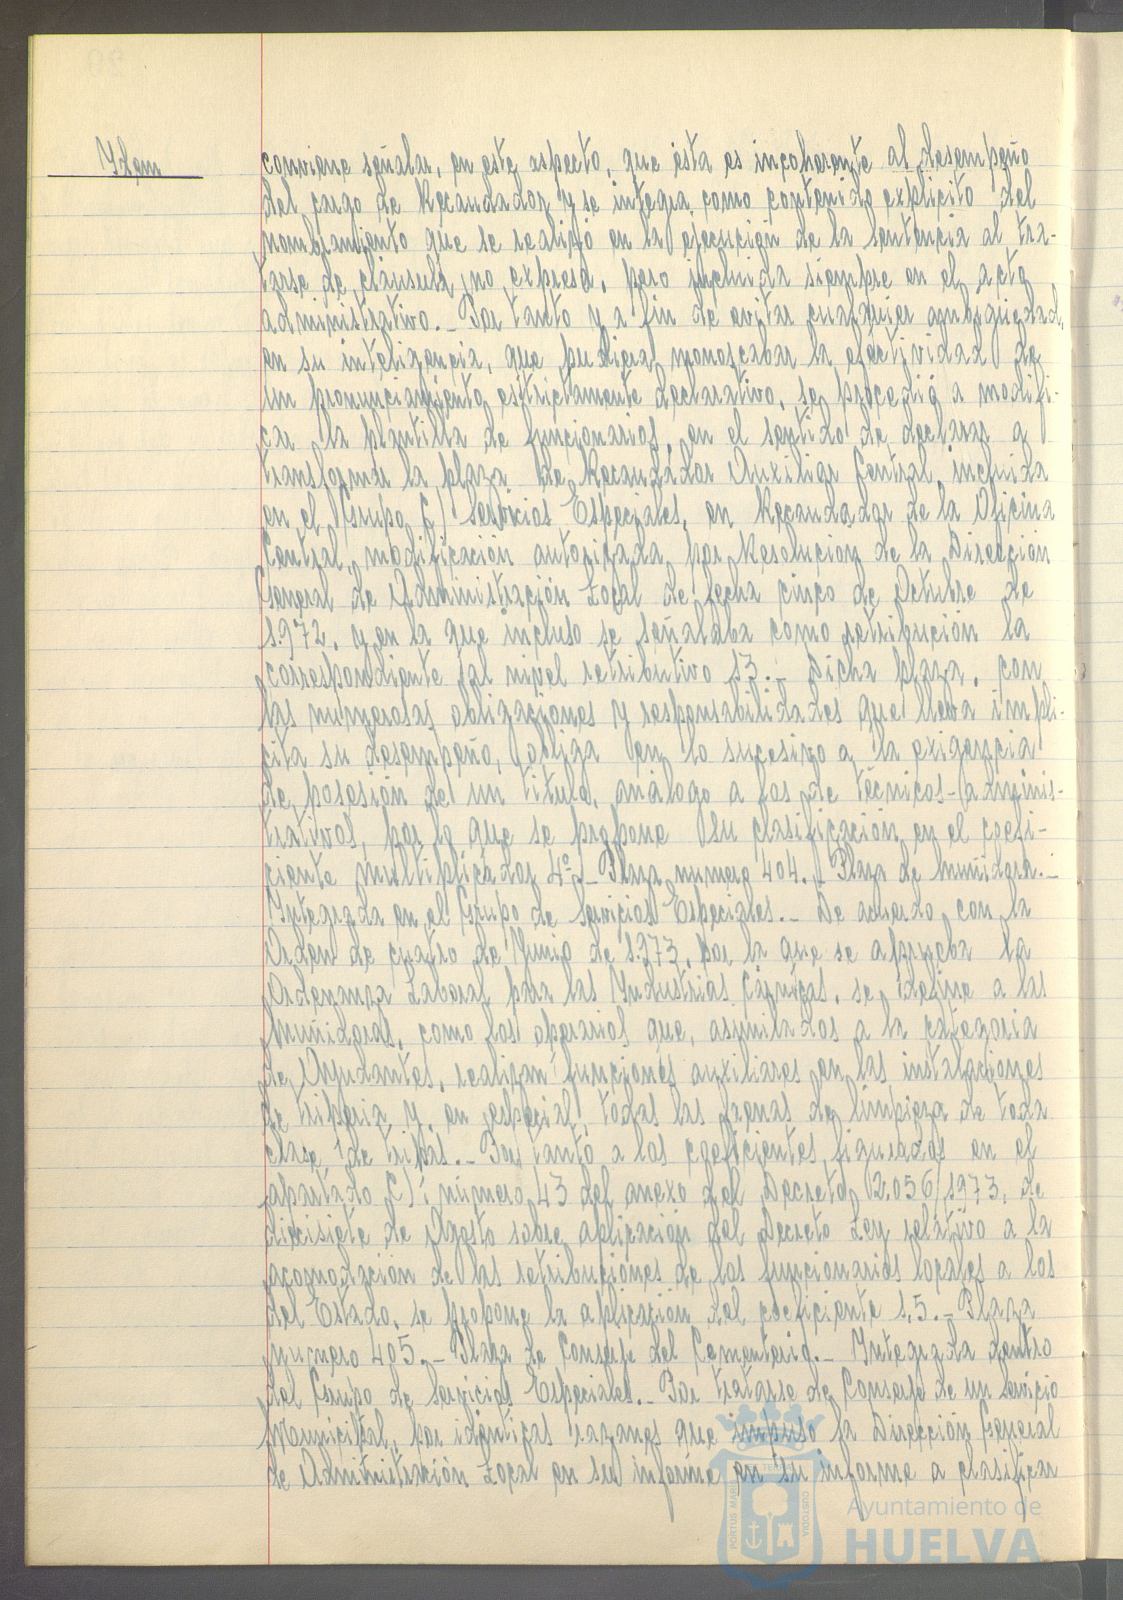 Idem
conviene señalar, en este aspecto, que ésta es incoherente al desempeño
del cargo de Recaudador y se integra como contenido explícito del
nombramiento que se realizó en la ejecución de la sentencia al tra-
tarse de cláusula no expresa, pero incluida siempre en el acto
administrativo.- Por tanto y a fin de evitar cualquier ambigüedad,
en su inteligencia, que pudiera menoscabar la efectividad de
un pronunciamiento estrictamente declarativo, se procedió a modifi-
car la plantilla de funcionarios, en el sentido de declarar a
transformar la plaza de Recaudador Auxiliar Central, incluida
en el Grupo C) Servicios Especiales, en Recaudador de la Oficina
Central, modificación autorizada por Resolución de la Dirección
General de Administración Local de fecha cinco de Octubre de
1.972, y en la que incluso se señalaba como retribución la
correspondiente al nivel retributivo 13.- Dicha plaza, con
las numerosas obligaciones y responsabilidades que lleva implí-
cita su desempeño, obliga en lo sucesivo a la exigencia
de posesión de un título, análogo a los de técnicos-adminis-
trativos, por lo que se propone su clasificación en el coefi-
ciente multiplicador 4º.- Plaza numero 404.- Plaza de Muñidora.-
Integrada en el Grupo de Servicios Especiales.- De acuerdo con la
Orden de cuatro de Junio de 1.973, por la que se aprueba la
Ordenanza Laboral para las Industrias Cárnicas, se define a las
Muñidoras, como los operarios que, asimilados a la categoria
de Ayudantes, realizan funciones auxiliares en las instalaciones
de tripería y, en especial, todas las faenas de limpieza de toda
clase de tripas.- Por tanto a los coeficientes figurados en el
apartado C): número 43 del anexo del Decreto 2.056/1973, de
diecisiete de Agosto sobre aplicación del Decreto Ley relativo a la
acomodación de las retribuciones de los funcionarios locales a los
del Estado, se propone la aplicación del coeficiente 1,5.- Plaza
numero 405.- Plaza de Conserje del Cementerio.- Integrada dentro
del Grupo de Servicios Especiales.- Por tratarse de Conserje de un servicio
Municipal, por identicas razones que impuso la Dirección General
de Administración Local en su informe en su informe a clasificar
PORTUS MARIS
TERRAE
CUSTODIA
Ayuntamiento de
HUELVA